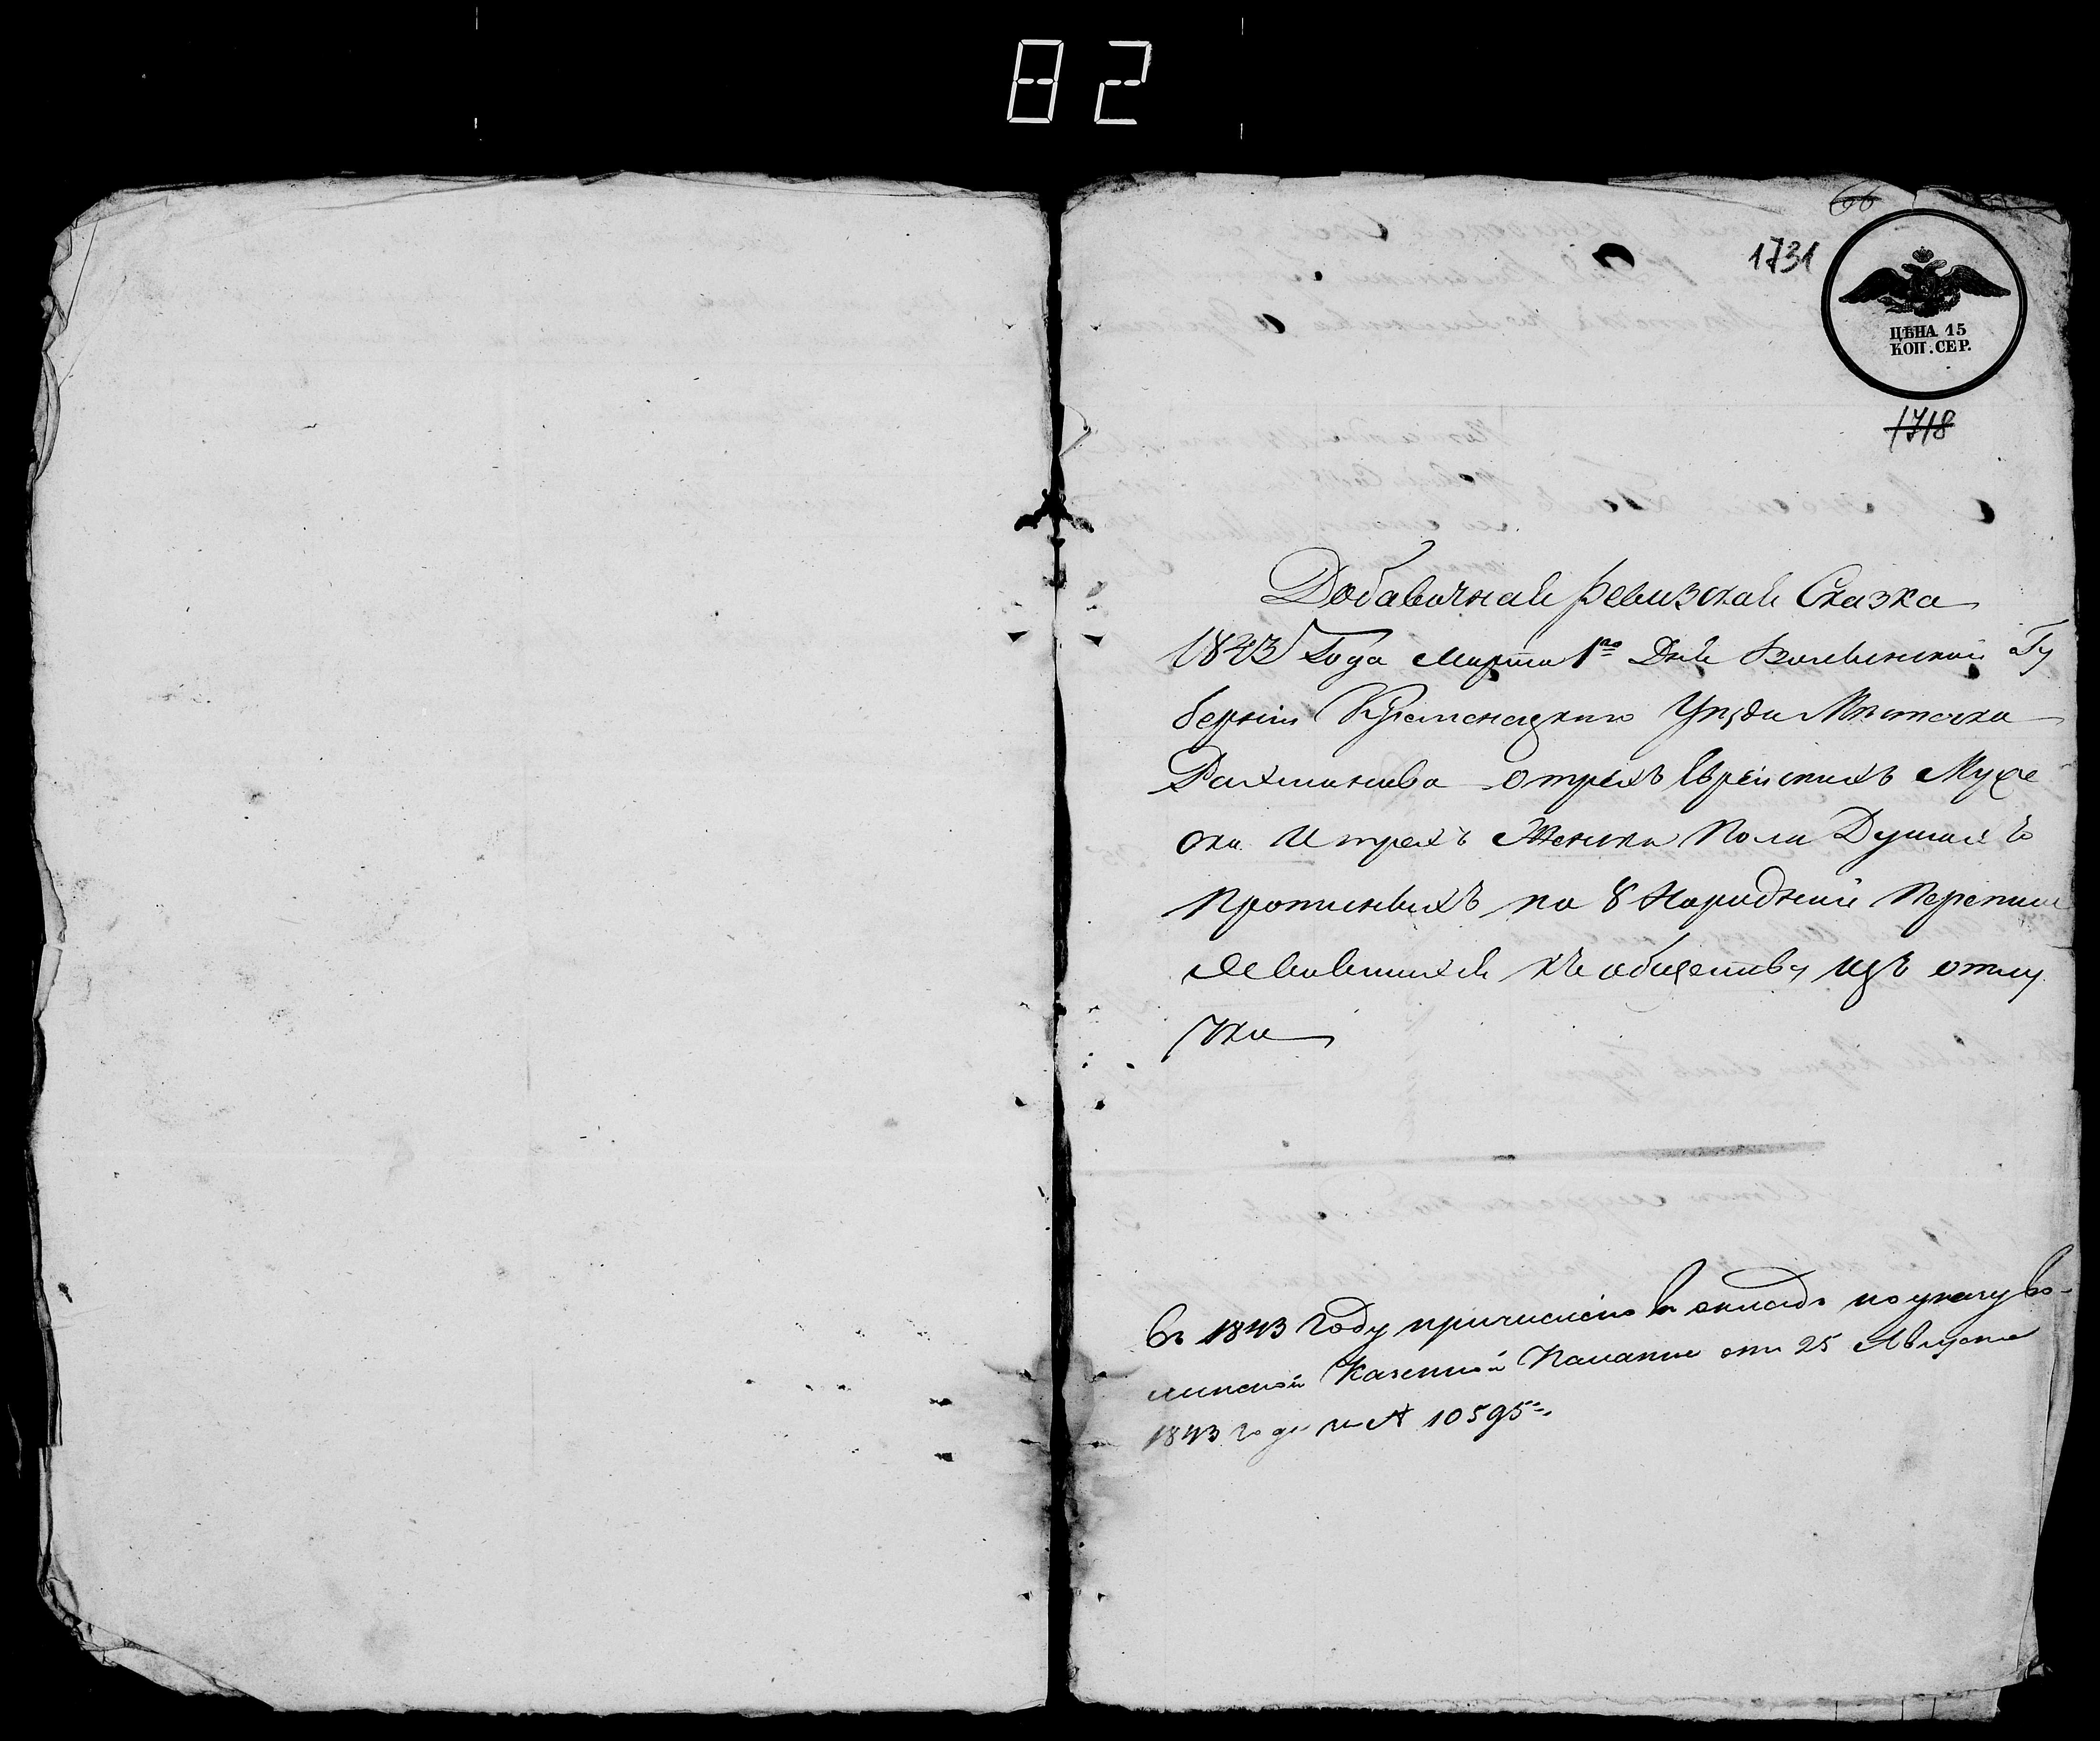 82
66
1731
ЦѢНА 15
КОП. СЕР.
1718
Добавочная Ревизская Сказка
1843 Года Марта 1го Дня Волынской Гу
берніи Кременецкаго Уѣзда Мѣстечка
Рахманова о трехъ Еврейскихъ Муже
ска и трехъ Женска Пола Душахъ
Пропискныхъ по 8 Народной Переписи
Явившихся къ обществу изъ отлу
чки
Въ 1843 году причислено въ окладъ по указу Во-
лынской Казенной Палаты отъ 25 Августа
1843 года за № 10595